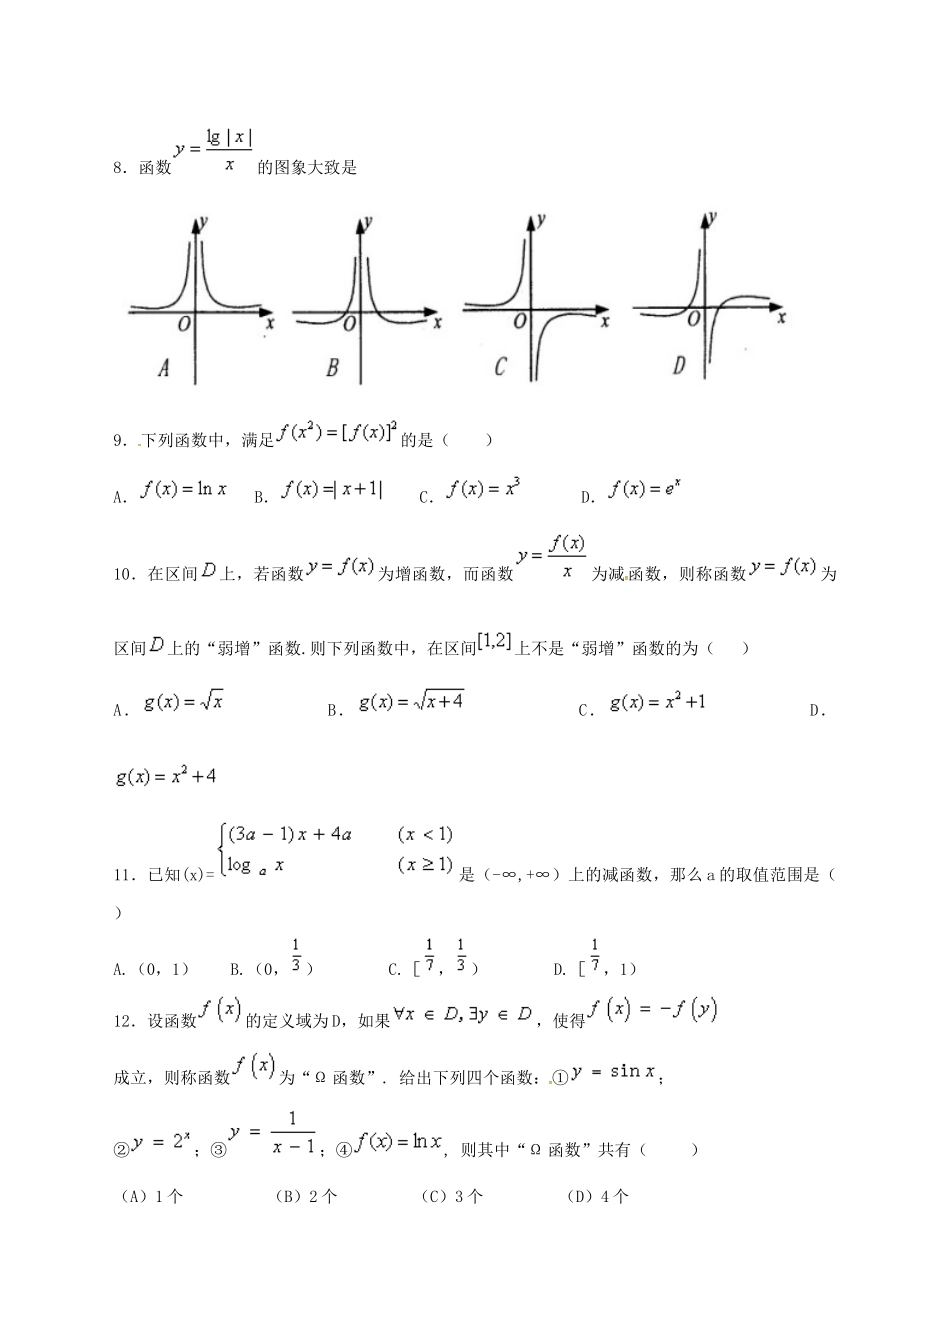 8. 函数 y = lg|x| / x 的图象大致是
y y y y
O x O x O x O x
A B C D
9. 下列函数中, 满足 f(x²) = [f(x)]² 的是（ ）
A. f(x) = ln x B. f(x) = |x+1| C. f(x) = x³ D. f(x) = eˣ
10. 在区间 D 上, 若函数 y = f(x) 为增函数, 而函数 y = f(x)/x 为减函数, 则称函数 y = f(x) 为
区间 D 上的“弱增”函数.则下列函数中, 在区间 [1,2] 上不是“弱增”函数的为（ ）
A. g(x) = √x B. g(x) = √(x+4) C. g(x) = x²+1 D.
g(x) = x²+4
11. 已知(x)= { (3a−1)x+4a (x<1) log_a x (x≥1) 是（-∞,+∞）上的减函数, 那么 a 的取值范围是（
）
A.（0, 1） B.（0, 1/3） C. [1/7, 1/3） D. [1/7, 1）
12. 设函数 f(x) 的定义域为 D, 如果 ∀x∈D,∃y∈D, 使得 f(x) = −f(y)
成立, 则称函数 f(x) 为“Ω 函数”. 给出下列四个函数: ① y = sin x;
② y = 2ˣ; ③ y = 1/(x−1); ④ f(x) = ln x, 则其中“Ω 函数”共有（ ）
（A）1 个 （B）2 个 （C）3 个 （D）4 个